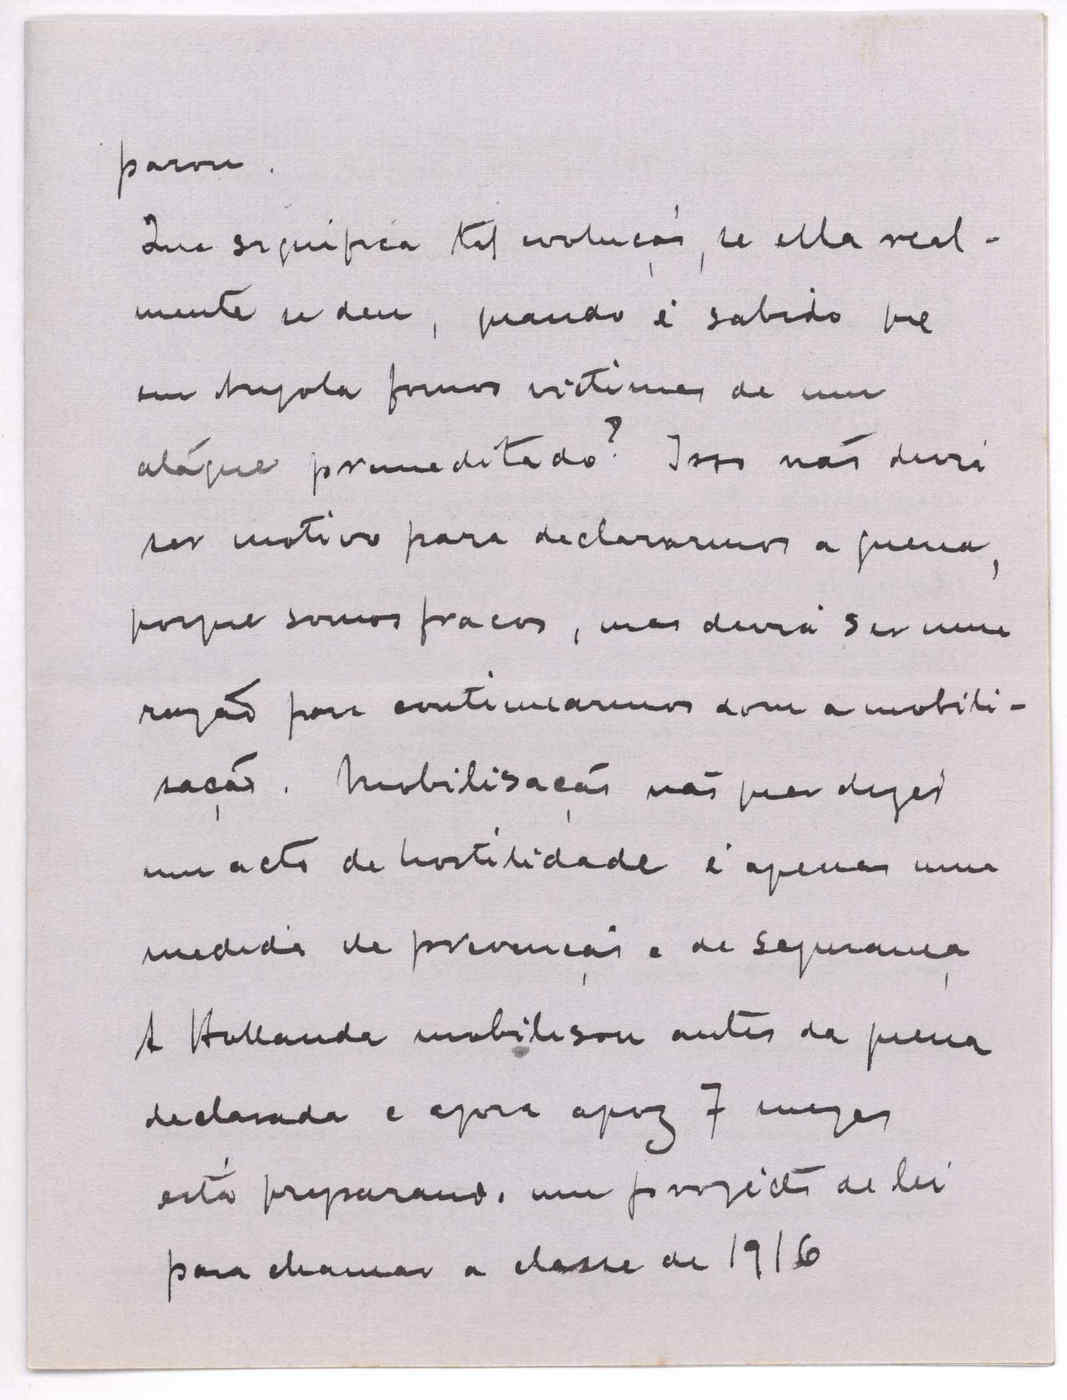 parou.
Que significa tal evolução, se ella real-
mente se deu, quando é sabido que
em Angola fomos victimas de um
atáque premeditado? Isso não devia
ser motivo para declararmos a guerra,
porque somos fracos, mas devia ser uma
razão para continuarmos com a mobili-
sação. Mobilisação não quer dizer
um acto de hostilidade é apenas uma
medida de prevenção e de segurança
A Hollanda mobilisou antes da guerra
declarada e agora apoz 7 mezes
está preparando um projecto de lei
para chamar a classe de 1916